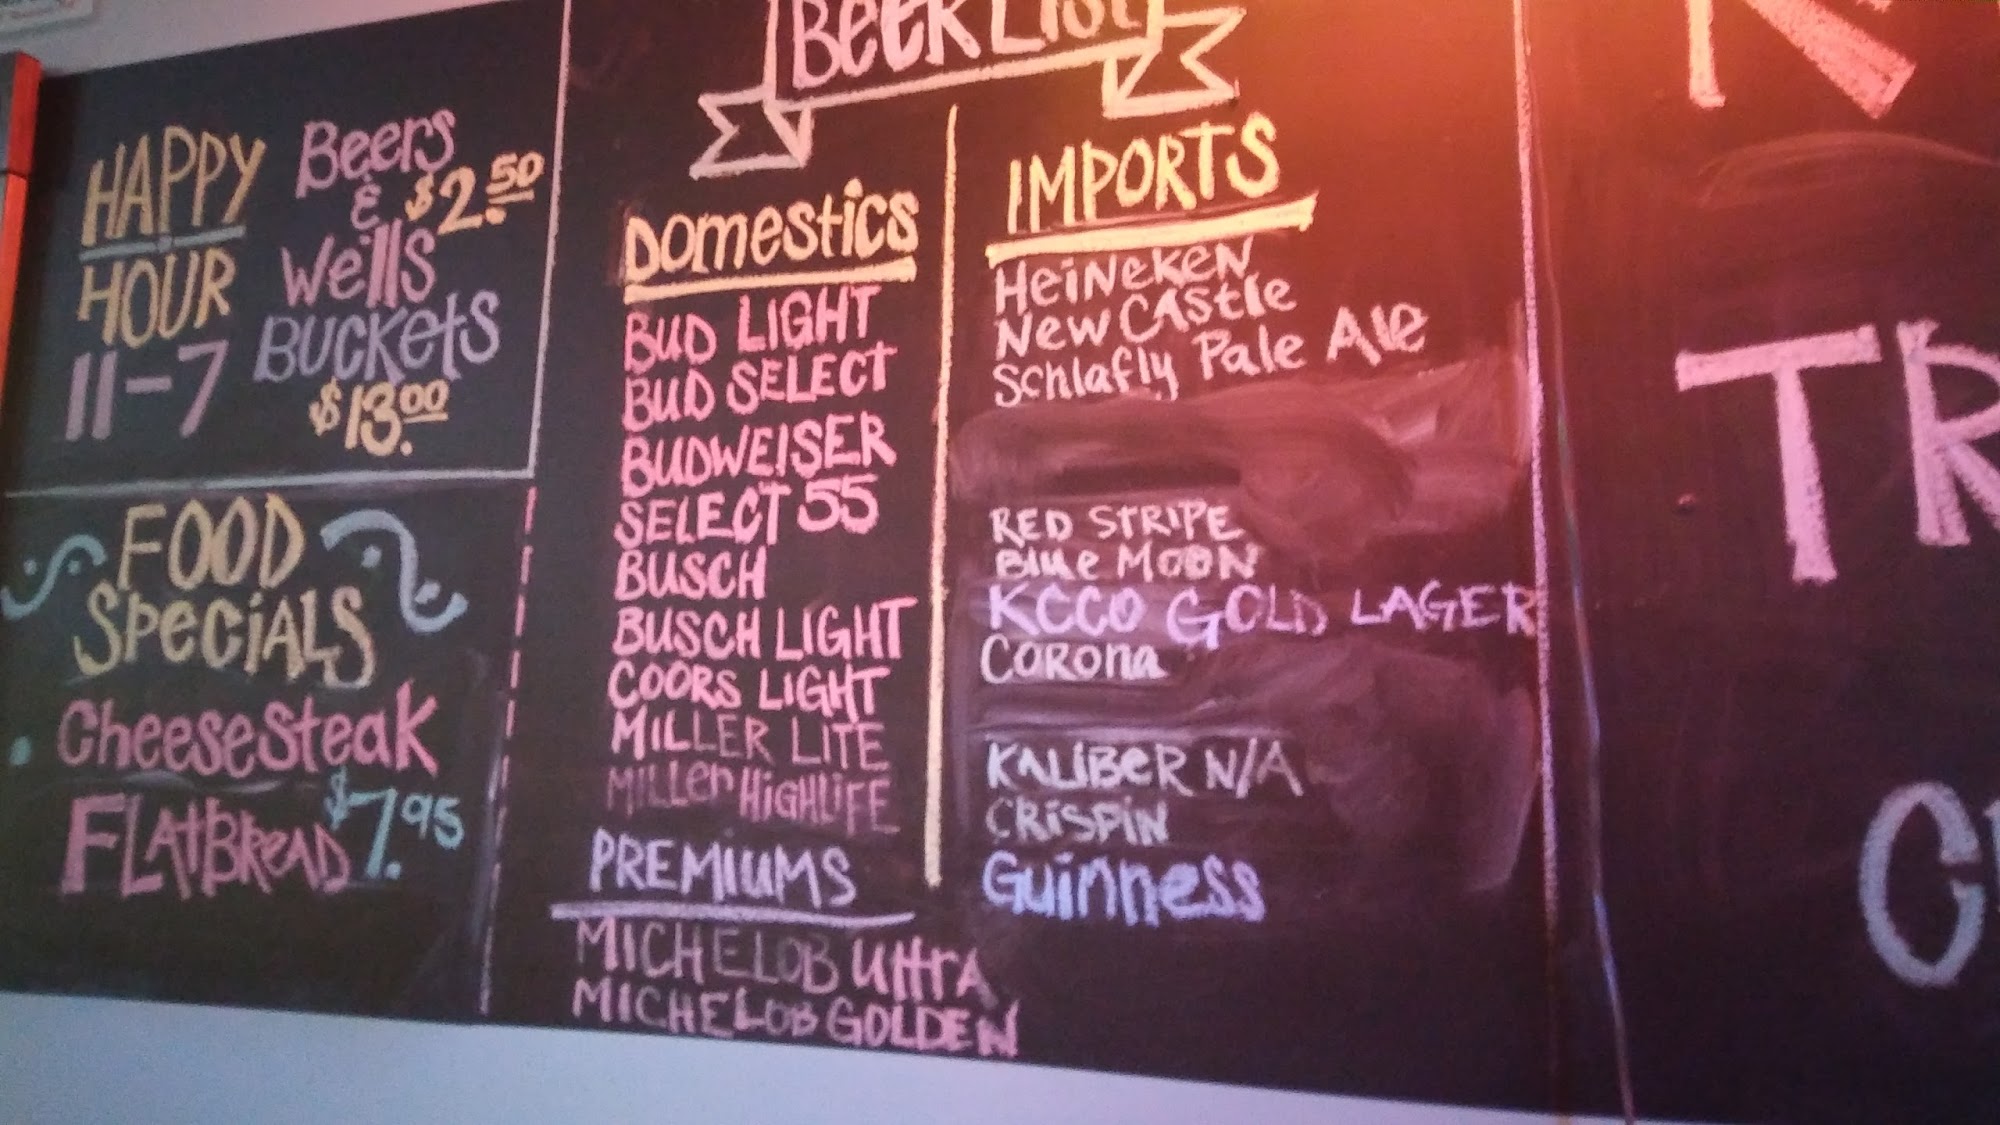 HAPPY
HOUR
11-7
Beers
& $2.50
Wells
Buckets
$13.00
FOOD
SPeciALS
CheeseSteak
FLAtBReAD $7.95
BeeR LiST
Domestics
BUD LIGHT
BUD SELECT
BUDWEISER
SELECT 55
BUSCH
BUSCH LIGHT
COORS LIGHT
MILLER LITE
MILLer HiGHLiFE
PREMiuMS
MICHELOB UltrA
MICHELOB GOLDEN
IMPORTS
HeiNeKeN
New CAStle
Schlafly Pale Ale
RED STRIPE
Blue MOON
KCCO GOLD LAGER
CORONa
KALiBeR N/A
CRiSPiN
Guinness